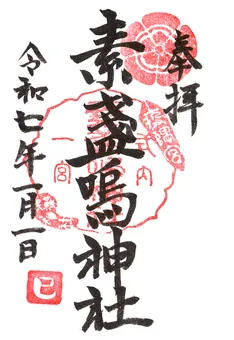 奉拝
素盞嗚神社
令和七年一月一日
一宮
内
巳